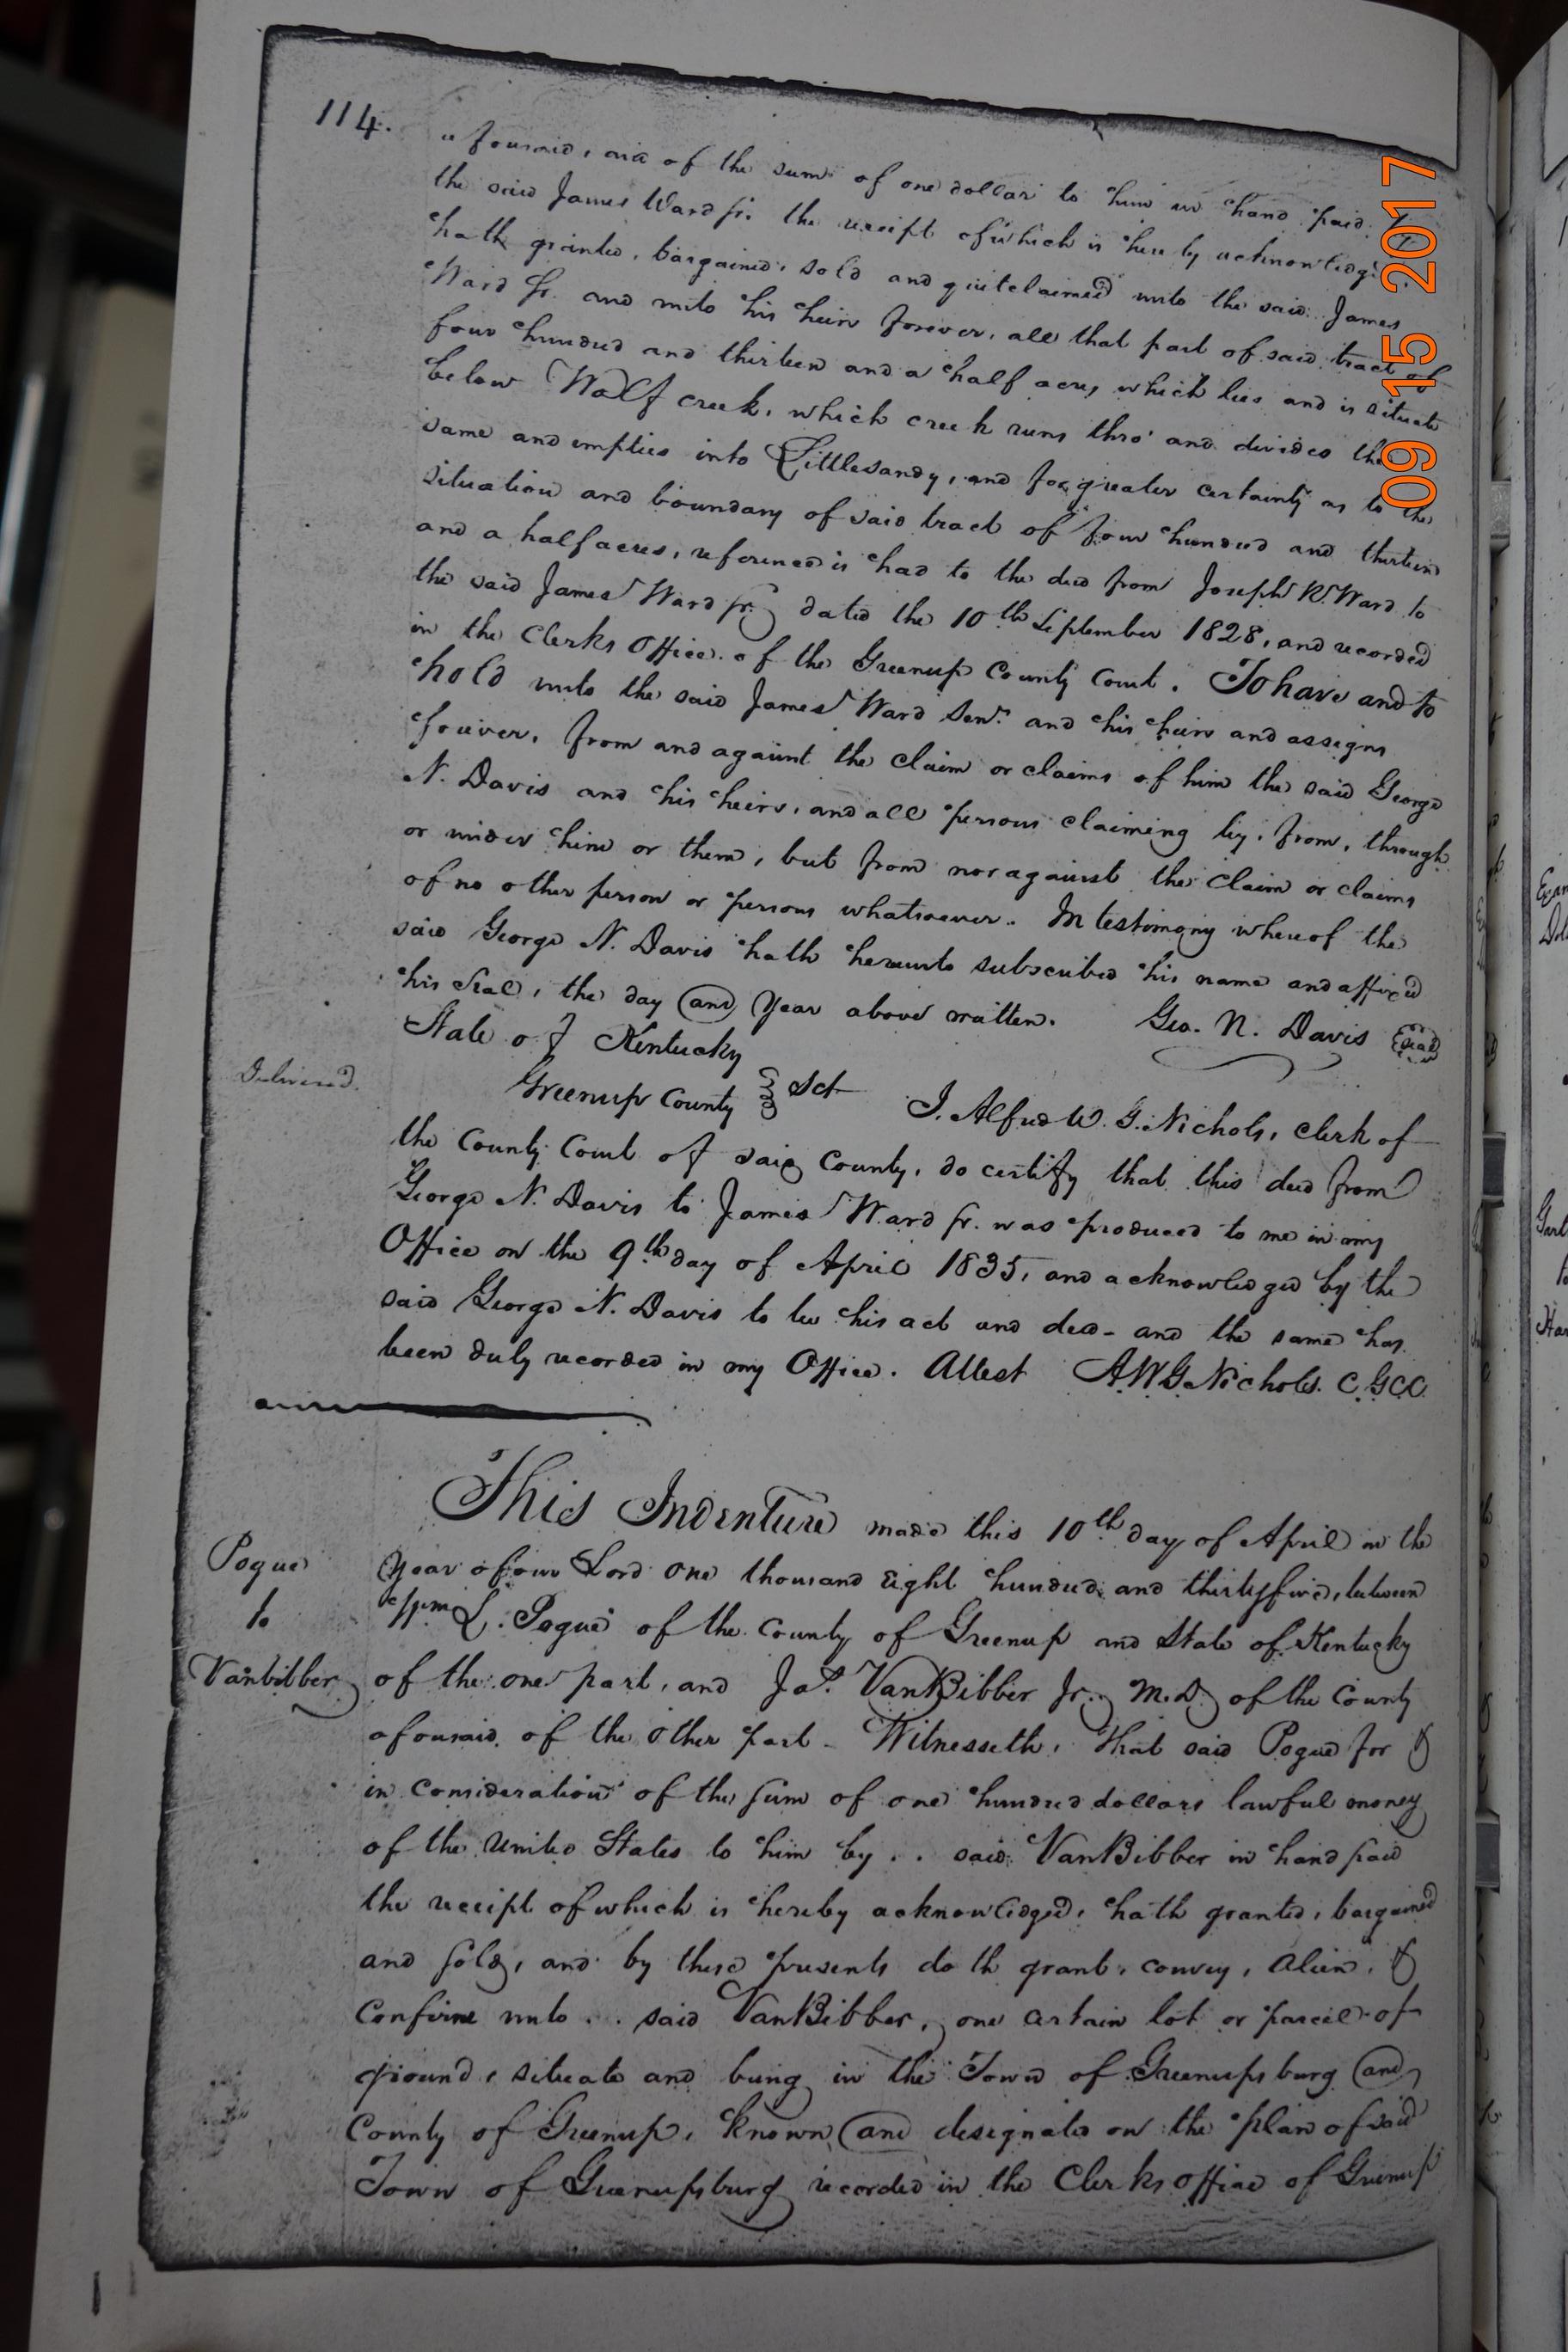 114.
aforesaid, and of the sum of one dollar to him in hand paid
the said James Ward sr. the receipt of which is hereby acknowledgd
hath granted, bargained, sold and quitclaimed unto the said James
Ward sr. and unto his heirs forever, all that part of said tract of
four hundred and thirteen and a half acres which lies and is situate
below Wolf creek, which creek runs thro' and divides the
same and empties into Littlesandy, and for greater certainty as to the
situation and boundary of said tract of four hundred and thirteen
and a half acres, reference is had to the deed from Joseph R. Ward to
the said James Ward sr. dated the 10th September 1828, and recorded
in the Clerks Office of the Greenup County Court. To have and to
hold unto the said James Ward Senr. and his heirs and assigns
forever, from and against the claim or claims of him the said George
N. Davis and his heirs, and all persons claiming by, from, through
or under him or them, but from nor against the claim or claims
of no other person or persons whatsoever. In testimony whereof the
said George N. Davis hath hereunto subscribed his name and affixed
his seal, the day and year above written. Geo. N. Davis seal
State of Kentucky
Delivered.
Greenup County Sct I. Alfred W. G. Nichols, Clerk of
the County Court of said County, do certify that this deed from
George N. Davis to James Ward sr. was produced to me in my
Office on the 9th day of April 1835, and acknowledged by the
said George N. Davis to be his act and deed - and the same has
been duly recorded in my Office. Attest A.W.G. Nichols. C.G.C.C.
This Indenture made this 10th day of April in the
Pogue
to
Vanbibber
Year of our Lord one thousand Eight hundred and thirty five, between
L. Pogue of the County of Greenup and State of Kentucky
of the one part, and Jas. VanBibber Jr. M.D. of the County
aforesaid of the other part - Witnesseth, that said Pogue for &
in consideration of the sum of one hundred dollars lawful money
of the United States to him by . . said VanBibber in hand paid
the receipt of which is hereby acknowledged, hath granted, bargained
and sold, and by these presents doth grant, convey, alien, &
confirm unto . . said VanBibber, one certain lot or parcel of
ground, situate and being in the Town of Greenupsburg and
County of Greenup, known and designated on the plan of said
Town of Greenupsburg recorded in the Clerks Office of Greenup
09 15 2017